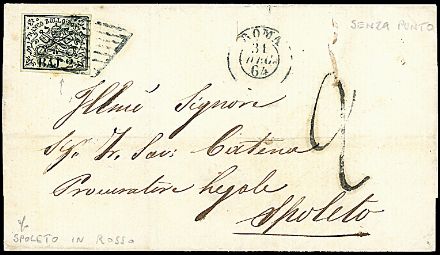 FRANCO BOLLO POSTALE
BAJ 2
ROMA
31
DEC.
64
SENZA PUNTO
Illmo Signore
Sig. Fr. Sav:
Procuratore Legale
Spoleto
2
SPOLETO IN ROSSO